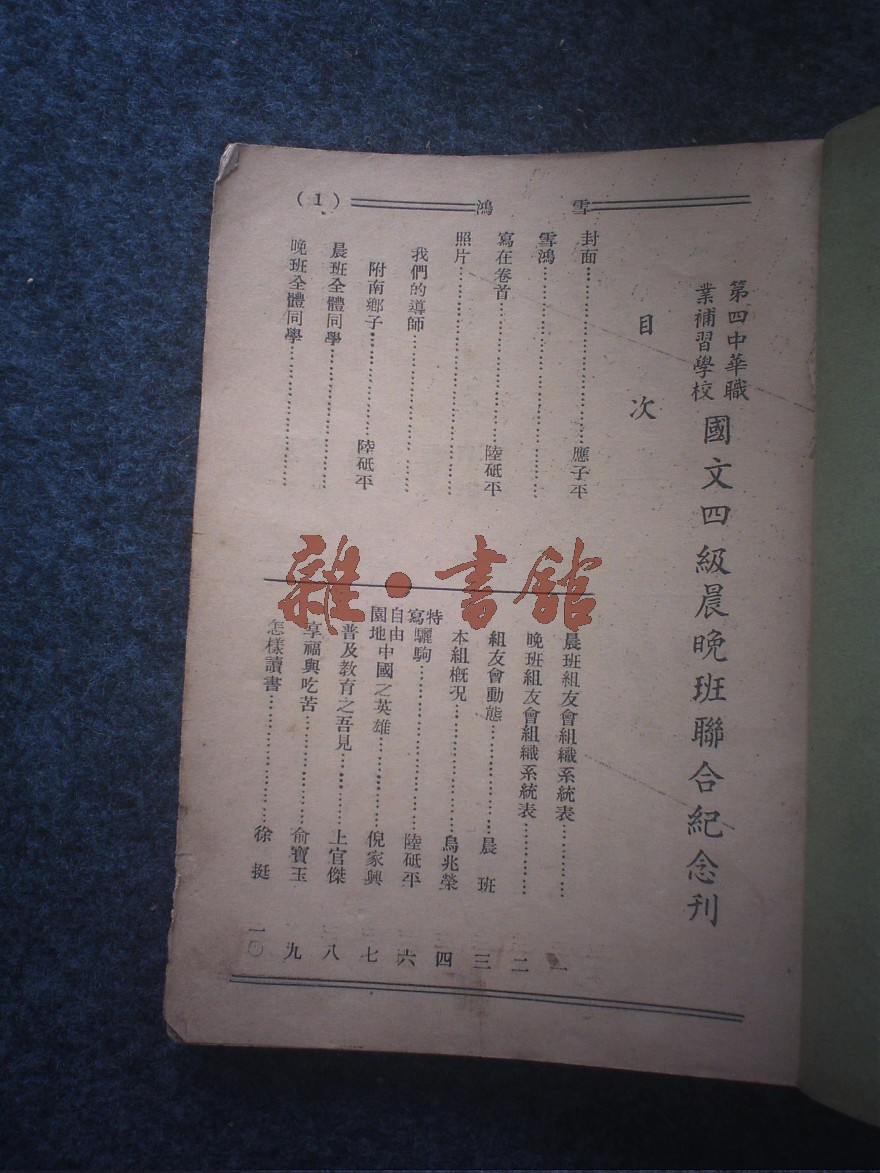 雪鴻
(1)
第四中華職
業補習學校
國文四級晨晚班聯合紀念刊
目次
封面……………………應子平
雪鴻……………………
寫在卷首……………………陸砥平
照片……………………
我們的導師……………………
附南鄉子……………………陸砥平
晨班全體同學……………………
晚班全體同學……………………
晨班組友會組織系統表…………一
晚班組友會組織系統表…………二
組友會動態……………………晨班 三
本組概況……………………烏兆榮 四
特寫 驪駒……………………陸砥平 六
自由園地 中國之英雄……………………倪家興 七
普及教育之吾見……………………上官傑 八
享福與吃苦……………………俞寶玉 九
怎樣讀書……………………徐挺 一〇
雜·書館